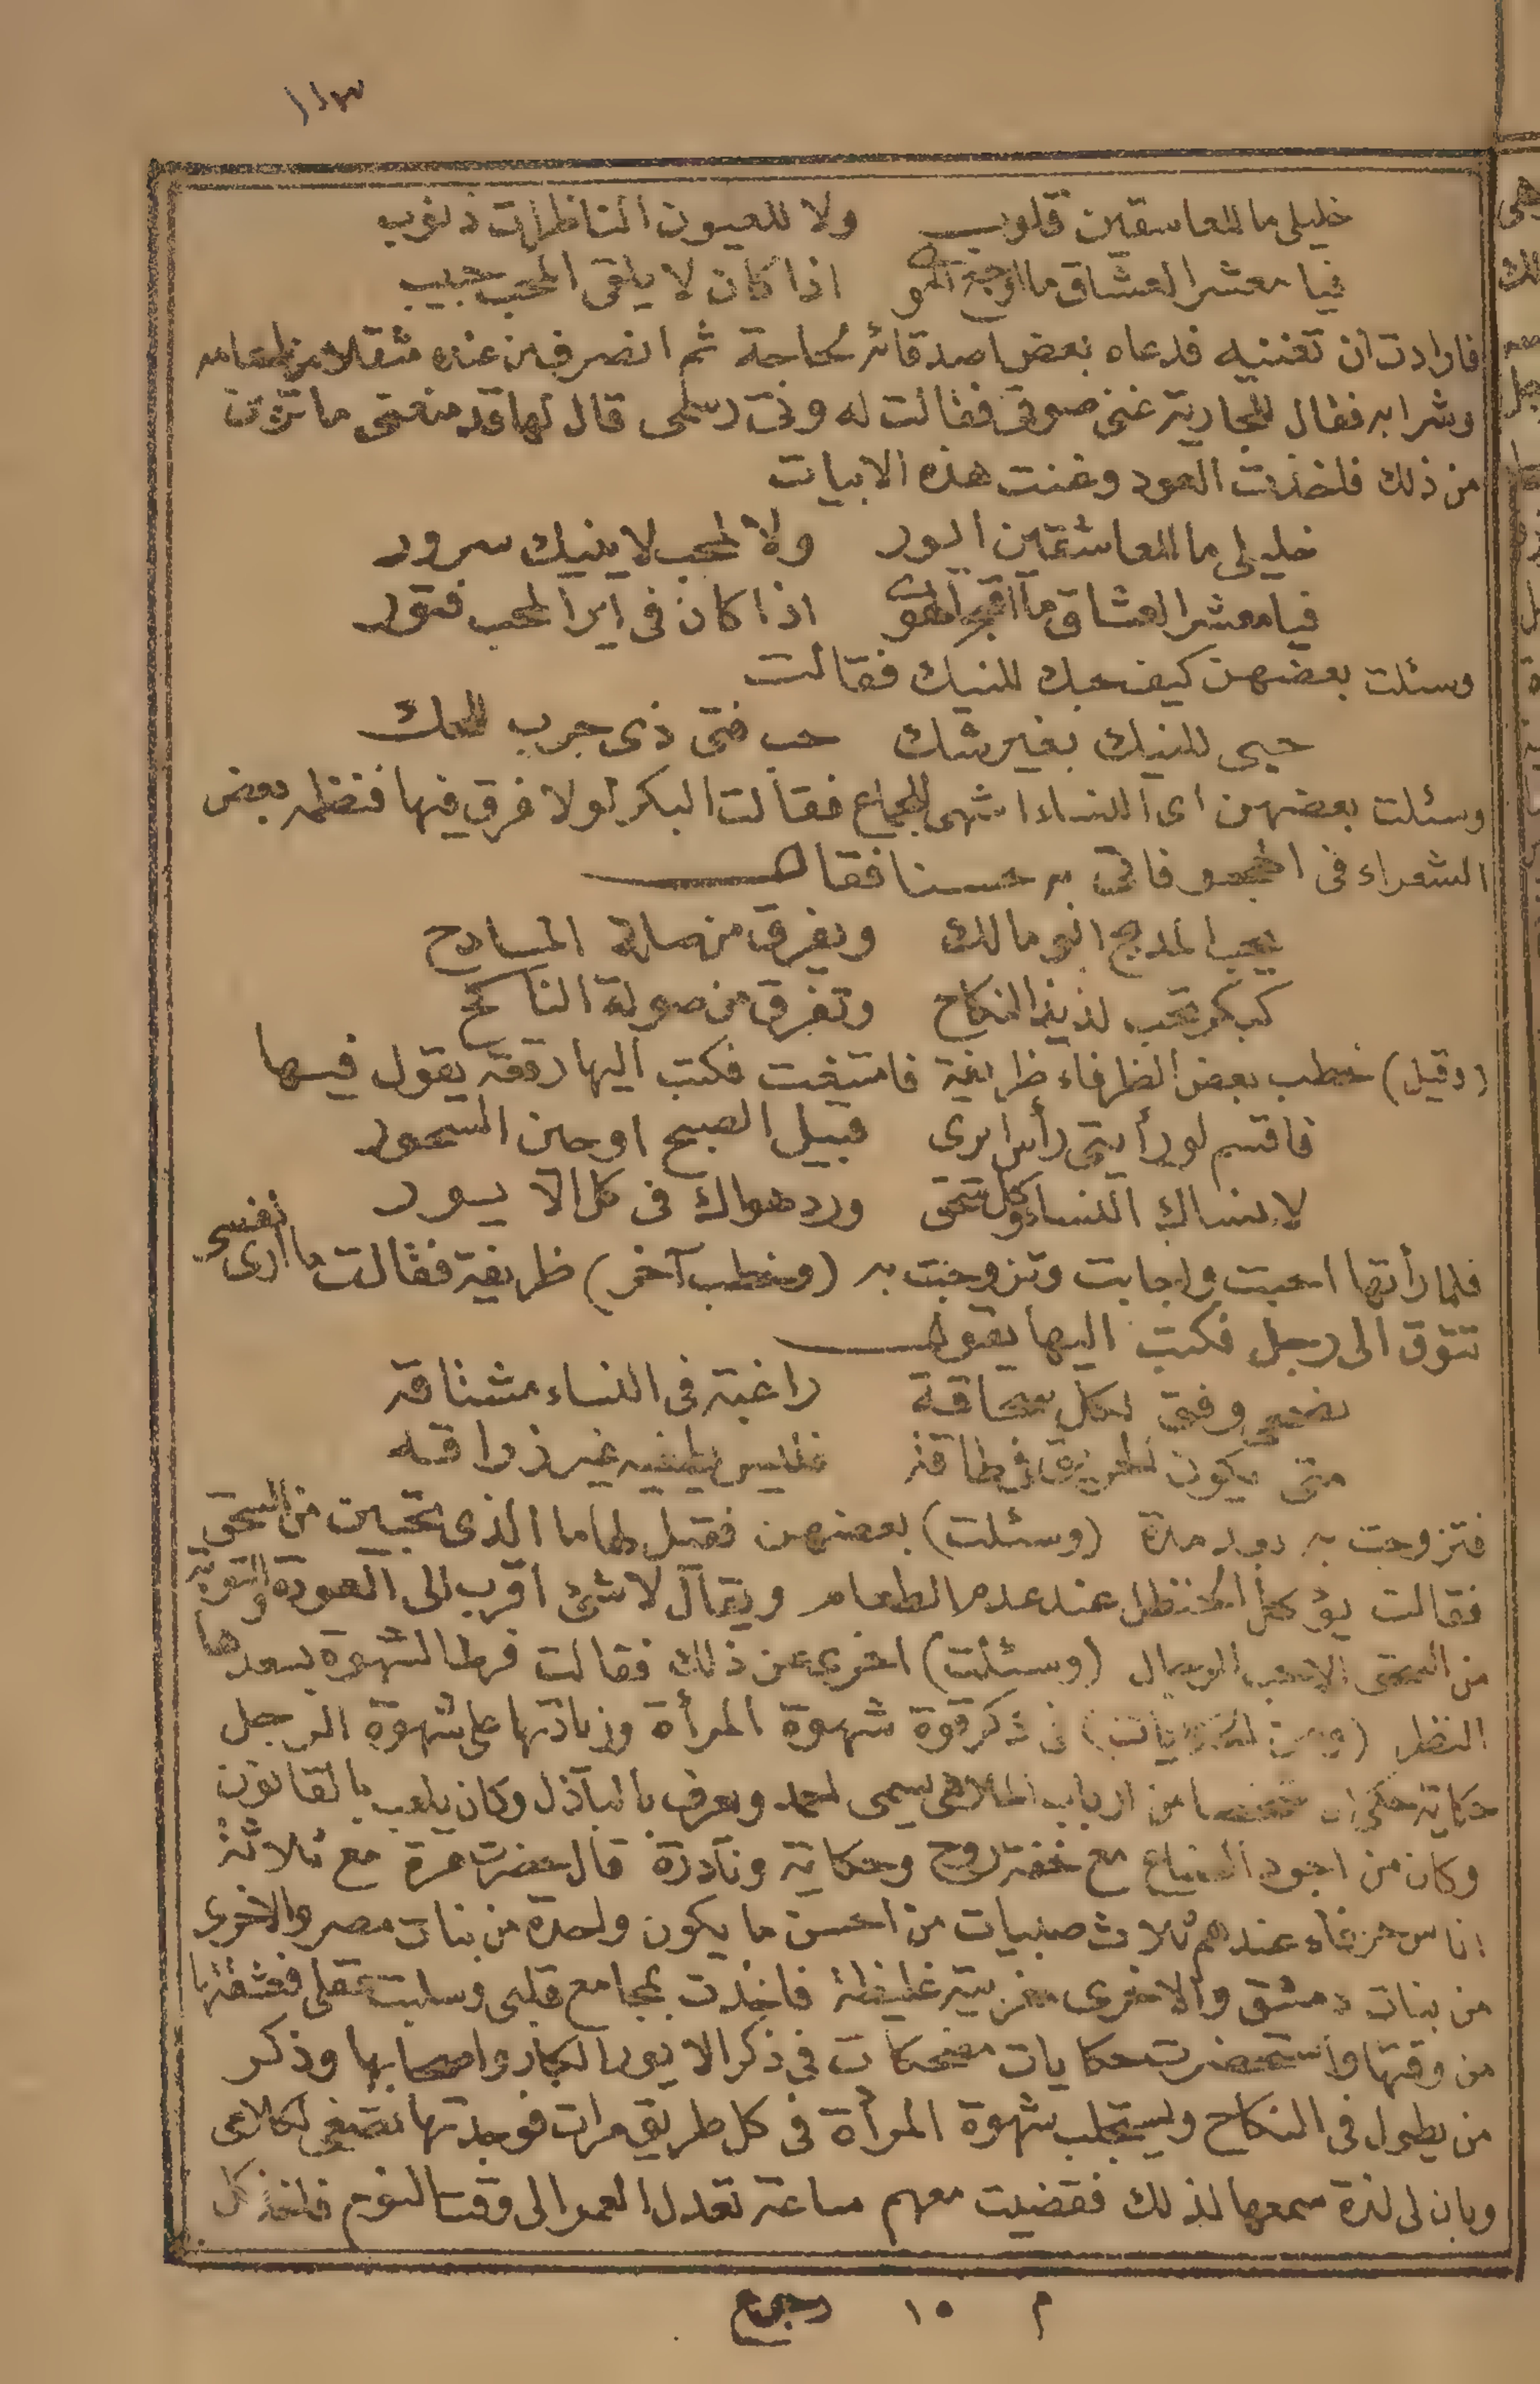 ١١٣
خليلى ما للعاشقين قلوب ولا للعيون الناظرات ذنوب
فيا معشر العشاق ما اوجع الهوى اذا كان لا يلقى المحب حبيب
فارادت ان تغنيه فدعاه بعض اصدقائه لحاجة ثم انصرف من عنده مثقلا من طعامه
وشرابه فقال للجارية غنى صوتى فقالت له وفى رسلمى قال لها قد منعتنى ما ترون
من ذلك فاخذت العود وغنت هذه الابيات
خليلى ما للعاشقين ايور ولا لمحب لا ينيك سرور
فيا معشر العشاق ما اقبح الهوى اذا كان فى اير المحب فتور
وسئلت بعضهن كيف حبك للنيك فقالت
حبى للنيك بغير شك حب فتى ذى جرب للحك
وسئلت بعضهن اى النساء اشهى للجماع فقالت البكر لولا فرق فيها فنظمه بعض
الشعراء فى الهجو فاتى به حسنا فقال
يحب المديح ابو مالك ويفرق من صلة المادح
كبكر تحب لذيذ النكاح وتفرق من صولة الناكح
(وقيل) خطب بعض الظرفاء ظريفة فامتنعت فكتب اليها رقعة يقول فيها
فاقسم لو رأيتى رأس ايرى قبيل الصبح او حين السحور
لانساك النساء وكل سحق ورد هواك فى كل الايور
فلما رأتها احبت واجابت وتزوجت به (وخطب آخر) ظريفة فقالت ما ارى نفسى
تتوق الى رجل فكتب اليها يقول
وفق لكل سحاقة راغبة فى النساء مشتاقة
متى يكون فى طاقة فليس يطفيه غير زراقه
فتزوجت به بعد مدة (وسئلت) بعضهن فقيل لها ما الذى تحبين من السحق
فقالت يؤكل الحنظل عند عدم الطعام ويقال لا شئ اقرب الى العودة والتوبة
من السحق الا حب الرجال (وسئلت) اخرى عن ذلك فقالت فرط الشهوة يسعدها
النظر (ومن الحكايات) فى ذكر قوة شهوة المرأة وزيادتها على شهوة الرجل
حكاية حكى ان شخصا من ارباب الملاهى يسمى احمد ويعرف بالباذل وكان يلعب بالقانون
وكان من اجود الصناع مع خفة روح وحكاية ونادرة قال حضرت مرة مع ثلاثة
اناس حرفاء عندهم ثلاث صبيات من احسن ما يكون واحدة من بنات مصر والاخرى
من بنات دمشق والاخرى مغربية غليظة فاخذت بمجامع قلبى وسلبت عقلى فعشقتها
من وقتها واستحضرت حكايات مضحكات فى ذكر الايور الكبار واصحابها وذكر
من يطول فى النكاح ويستجلب شهوة المرأة فى كل طريق مرات فوجدتها تصغى لكلامى
وبان لى لذة سمعها لذلك فقضيت معهم ساعة تعدل العمر الى وقت النوم فاخذ كل
م ١٥ رجوع